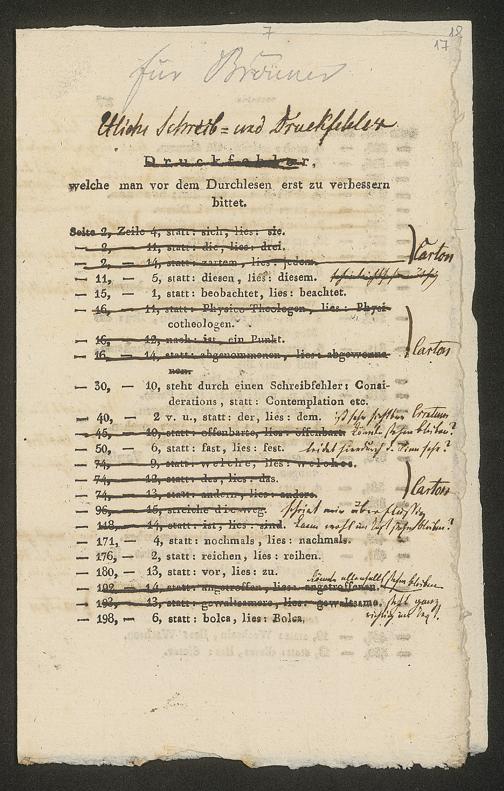 7
18
17
für Brönner
Etliche Schreib- und Druckfehler
Druckfehler,
welche man vor dem Durchlesen erst zu verbessern
bittet.
Seite 2, Zeile 4, statt: sich, lies: sie.
— 2, — 11, statt: die, lies: drei.
— 2, — 14, statt: zartem, lies: jedem.
Carton
— 11, — 5, statt: diesen, lies: diesem.
— 15, — 1, statt: beobachtet, lies: beachtet.
— 16, — 11, statt: Physico-Theologen, lies: Physi-
cotheologen.
— 16, — 12, nach: ist, ein Punkt.
— 16, — 14, statt: abgenommenen, lies: abgewonne-
nen.
Carton
— 30, — 10, steht durch einen Schreibfehler: Consi-
derations, statt: Contemplation etc.
— 40, — 2 v. u., statt: der, lies: dem.
— 45, — 10, statt: offenbarte, lies: offenbart. könnte stehen bleiben?
— 50, — 6, statt: fast, lies: fest. leidet hierdurch d. Sinn sehr?
— 74, — 9, statt: welche, lies: welches.
— 74, — 12, statt: des, lies: das.
— 74, — 13, statt: andern, lies: anders.
Carton
— 96, — 15, streiche die weg. scheint mir überflüssig
— 118, — 14, statt: ist, lies: sind. kann wohl im Text stehen bleiben?
— 171, — 4, statt: nochmals, lies: nachmals.
— 176, — 2, statt: reichen, lies: reihen.
— 180, — 13, statt: vor, lies: zu.
könnte allenfalls stehen bleiben
— 192, — 14, statt: angetroffen, lies: angetroffenen.
— 193, — 13, statt: gewaltsamere, lies: gewaltsame. steht ganz
— 198, — 6, statt: bolca, lies: Bolca.
richtig im